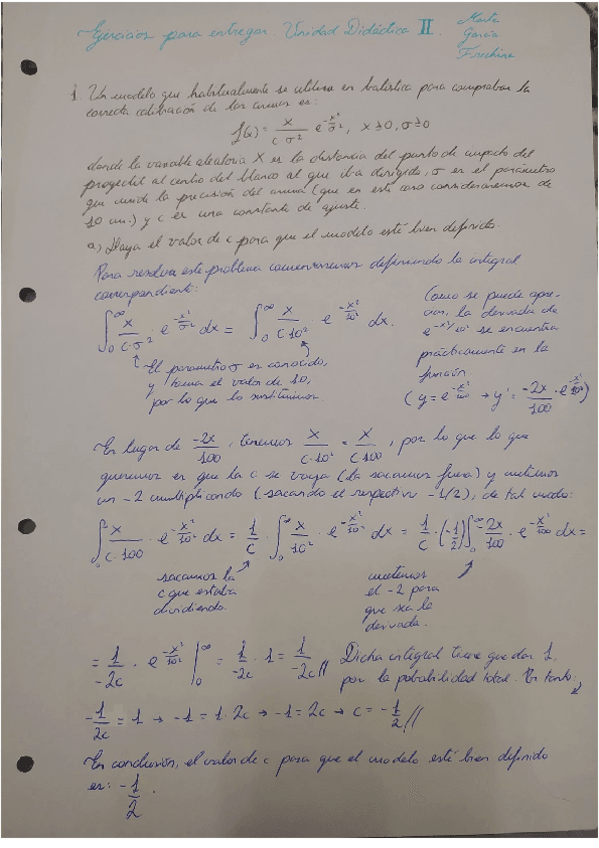 Ejercicios para entregar Unidad Didáctica II.
Marta
García
Frechina
1. Un modelo que habitualmente se utiliza en balística para comprobar la
correcta calibración de las armas es:
f(x) = x/(c σ²) e^(-x²/σ²), x ≥ 0, σ ≥ 0
donde la variable aleatoria X es la distancia del punto de impacto del
proyectil al centro del blanco al que iba dirigido, σ es el parámetro
que mide la precisión del arma (que en este caso consideraremos de
10 cm.) y c es una constante de ajuste.
a) Haya el valor de c para que el modelo esté bien definido.
Para resolver este problema comenzaremos definiendo la integral
correspondiente:
∫₀^∞ x/(c·σ²) · e^(-x²/σ²) dx = ∫₀^∞ x/(c·10²) · e^(-x²/10²) dx.
El parámetro σ es conocido,
y toma el valor de 10,
por lo que lo sustituimos.
Como se puede apre-
ciar, la derivada de
e^(-x²/10²) se encuentra
prácticamente en la
función
(y = e^(-x²/100) → y' = -2x/100 · e^(-x²/100))
En lugar de -2x/100, tenemos x/(c·10²) = x/(c·100), por lo que lo que
queremos es que la c se vaya (la sacamos fuera) y metemos
un -2 multiplicando (sacando el respectivo -1/2), de tal modo:
∫₀^∞ x/(c·100) · e^(-x²/10²) dx = 1/c · ∫₀^∞ x/10² · e^(-x²/10²) dx = 1/c · (-1/2) ∫₀^∞ -2x/100 · e^(-x²/100) dx =
sacamos la
c que estaba
dividiendo.
metemos
el -2 para
que sea la
derivada.
= 1/-2c · e^(-x²/10²) |₀^∞ = 1/-2c · 1 = 1/-2c // Dicha integral tiene que dar 1,
por la probabilidad total. Por tanto:
-1/2c = 1 → -1 = 1·2c → -1 = 2c → c = -1/2 //
En conclusión, el valor de c para que el modelo esté bien definido
es: -1/2.